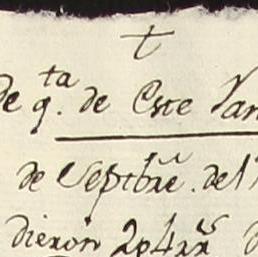 †
de q.ta de Este Var
de Septbre. del
dieron 2p4rrs